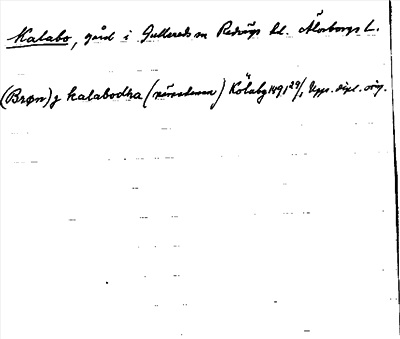 Kalabo, gård i Gullereds sn Redvägs hd. Älvsborgs L.
(Brøn) j kalabodha (närvarande) Kölaby 1491 29/1 Upps. dipl. orig.